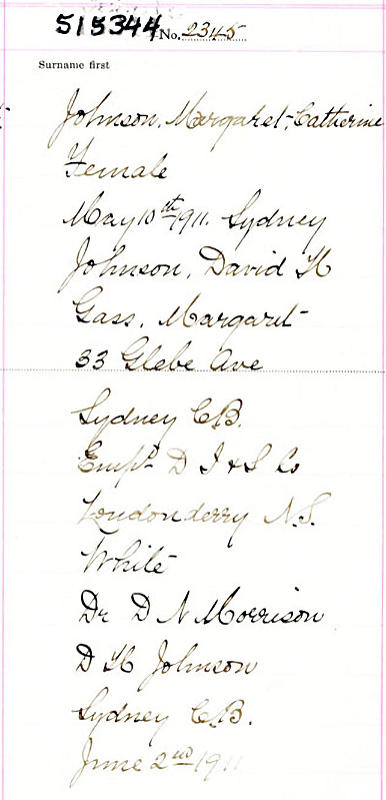 515344 No. 2345
Surname first
Johnson, Margaret Catherine
Female
May 10th 1911. Sydney
Johnson, David H
Gass, Margaret
33 Glebe Ave
Sydney C.B.
Emp. D I & S Co
Londonderry N.S.
White
Dr D N Morrison
D H Johnson
Sydney C.B.
June 2nd 1911